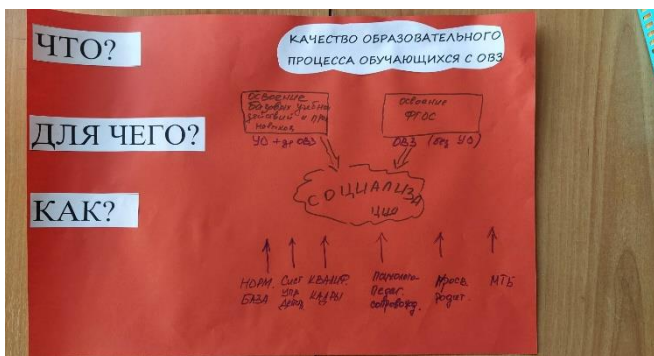 ЧТО?
КАЧЕСТВО ОБРАЗОВАТЕЛЬНОГО
ПРОЦЕССА ОБУЧАЮЩИХСЯ С ОВЗ
Освоение
базовых учебн
действий и
навыков
УО + др ОВЗ
Освоение
ФГОС
ОВЗ (без УО)
ДЛЯ ЧЕГО?
СОЦИАЛИЗА
ЦИЯ
КАК?
НОРМ.
БАЗА
Сист
упр
КВАЛИФ.
КАДРЫ
Психолого-
Педаг.
сопровожд.
Просв.
родит.
МТБ